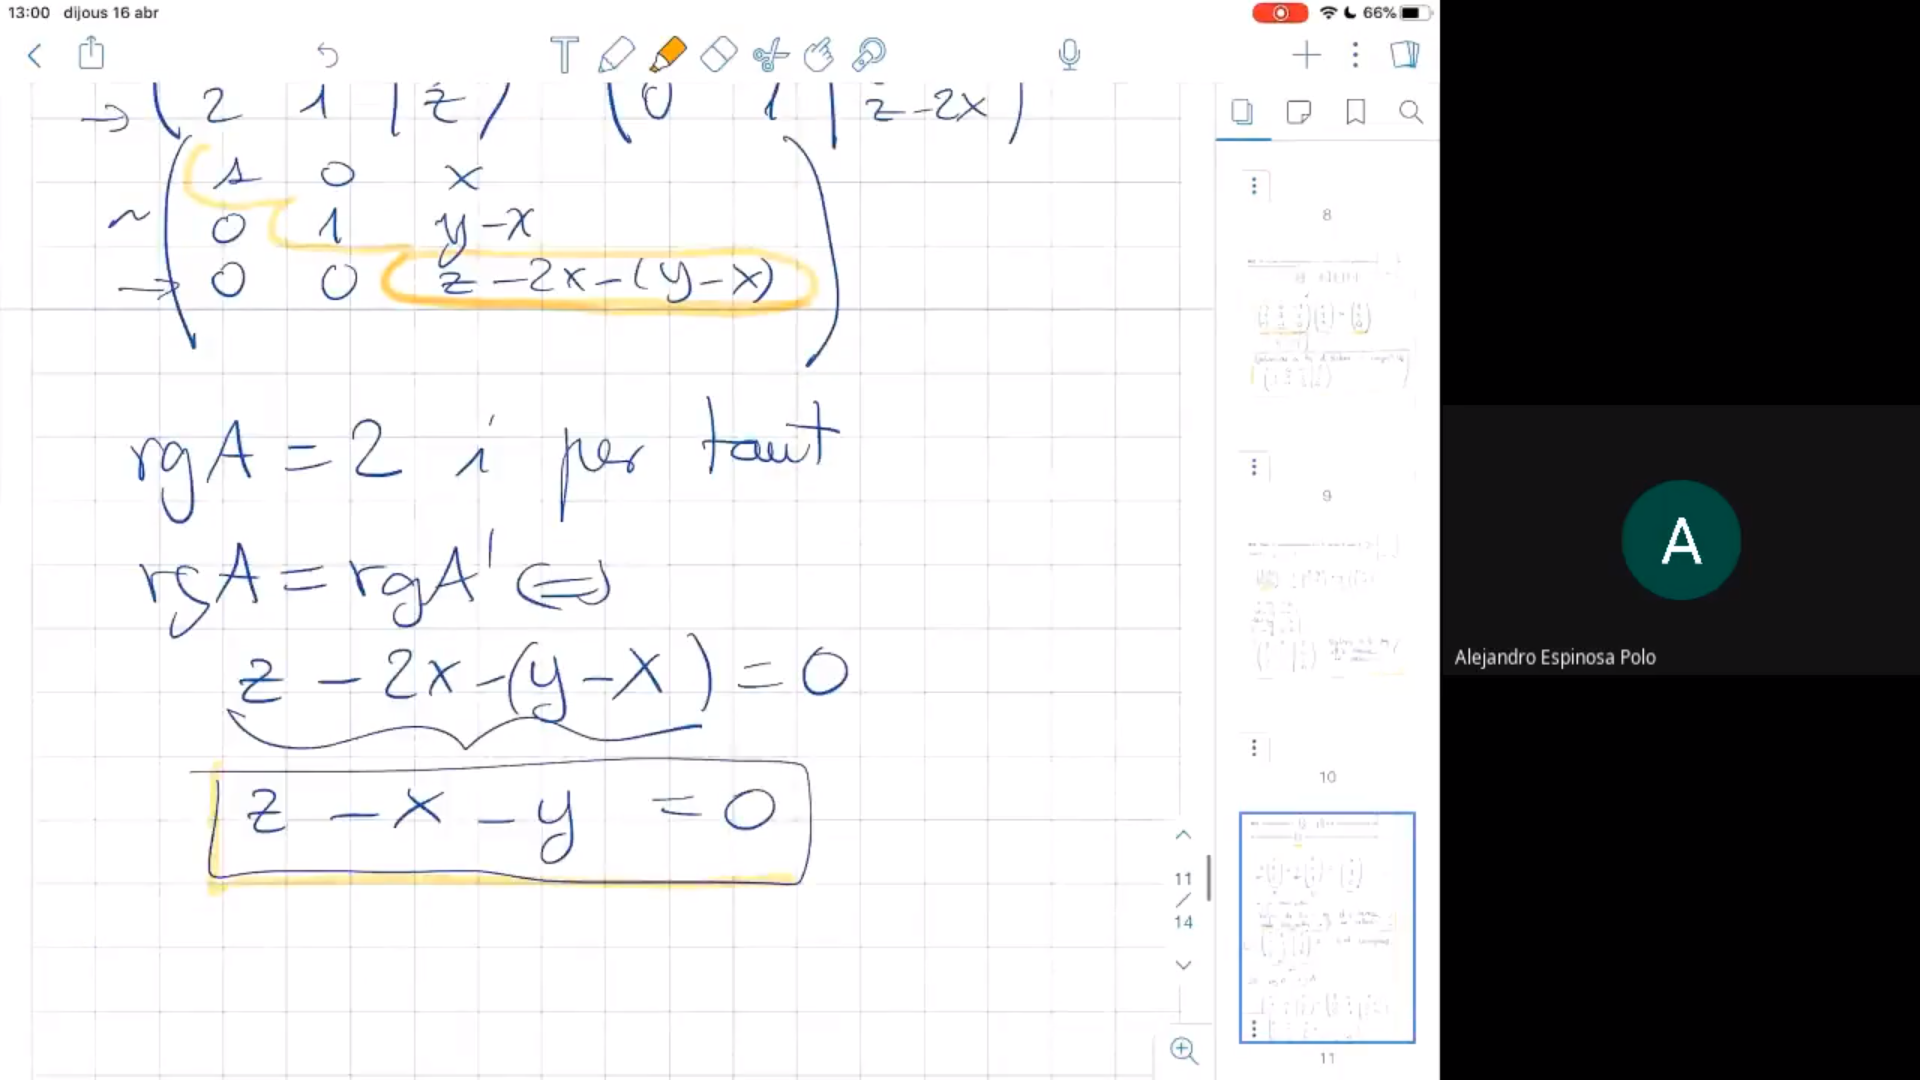 13:00 dijous 16 abr
66%
→ ( 2 1 | z ) ( 0 1 | z-2x )
1 0 x
~ 0 1 y-x
→ 0 0 z-2x-(y-x)
rgA = 2 i per tant
rgA = rgA' ⇔
z - 2x - (y-x) = 0
z - x - y = 0
8
9
10
11
11
/
14
A
Alejandro Espinosa Polo